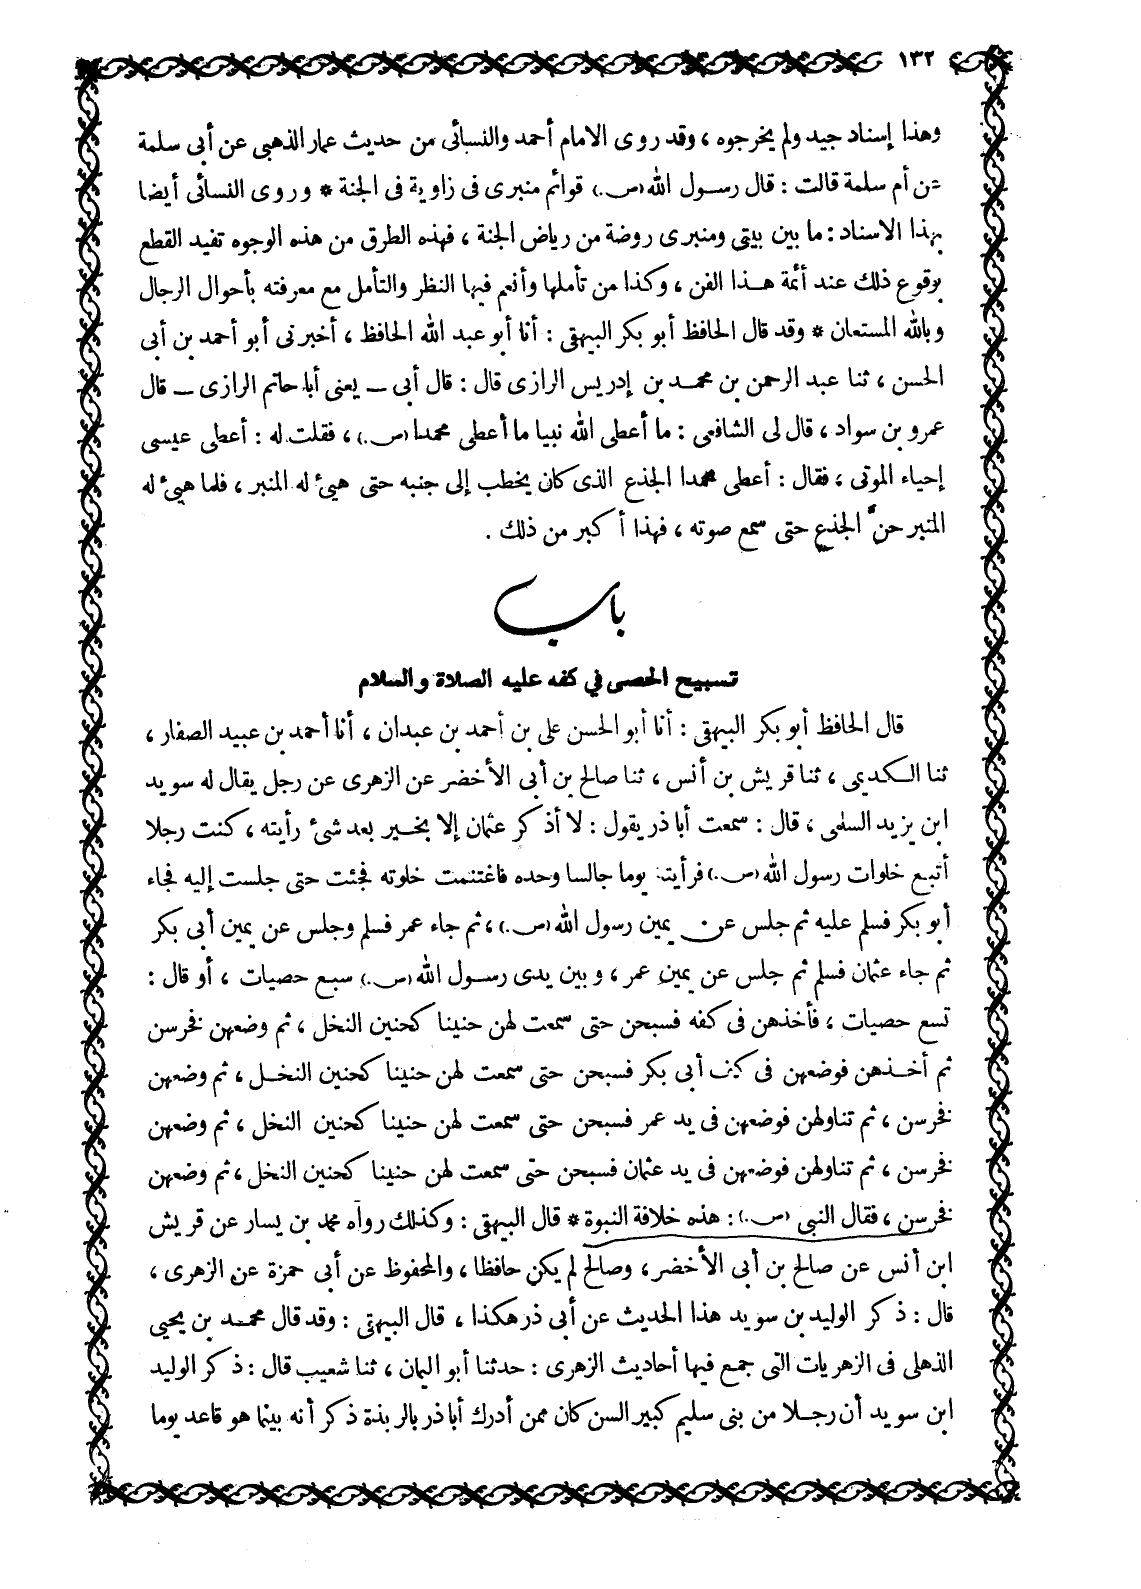 ١٣٢
وهذا إسناد جيد ولم يخرجوه ، وقد روى الامام أحمد والنسائى من حديث عمار الذهبى عن أبى سلمة
عن أم سلمة قالت : قال رسول الله (ص.) قوائم منبرى فى زاوية فى الجنة * وروى النسائى أيضا
بهذا الاسناد : ما بين بيتى ومنبرى روضة من رياض الجنة ، فهذه الطرق من هذه الوجوه تفيد القطع
بوقوع ذلك عند أئمة هذا الفن ، وكذا من تأملها وأنعم فيها النظر والتأمل مع معرفته بأحوال الرجال
وبالله المستعان * وقد قال الحافظ أبو بكر البيهقى : أنا أبو عبد الله الحافظ ، أخبرنى أبو أحمد بن أبى
الحسن ، ثنا عبد الرحمن بن محمد بن إدريس الرازى قال : قال أبى ــ يعنى أبا حاتم الرازى ــ قال
عمرو بن سواد ، قال لى الشافعى : ما أعطى الله نبيا ما أعطى محمدا (ص.) ، فقلت له : أعطى عيسى
إحياء الموتى ، فقال : أعطى محمدا الجذع الذى كان يخطب إلى جنبه حتى هيئ له المنبر ، فلما هيئ له
المنبر حنّ الجذع حتى سمع صوته ، فهذا أكبر من ذلك .
باب
تسبيح الحصى في كفه عليه الصلاة والسلام
قال الحافظ أبو بكر البيهقى : أنا أبو الحسن على بن أحمد بن عبدان ، أنا أحمد بن عبيد الصفار ،
ثنا الكديمى ، ثنا قريش بن أنس ، ثنا صالح بن أبى الأخضر عن الزهرى عن رجل يقال له سويد
ابن يزيد السلمى ، قال : سمعت أبا ذر يقول : لا أذكر عثمان إلا بخير بعد شئ رأيته ، كنت رجلا
أتبع خلوات رسول الله (ص.) فرأيته يوما جالسا وحده فاغتنمت خلوته فجئت حتى جلست إليه فجاء
أبو بكر فسلم عليه ثم جلس عن يمين رسول الله (ص.) ، ثم جاء عمر فسلم وجلس عن يمين أبى بكر
ثم جاء عثمان فسلم ثم جلس عن يمين عمر ، وبين يدى رسول الله (ص.) سبع حصيات ، أو قال :
تسع حصيات ، فأخذهن فى كفه فسبحن حتى سمعت لهن حنينا كحنين النخل ، ثم وضعهن فخرسن
ثم أخذهن فوضعهن فى كف أبى بكر فسبحن حتى سمعت لهن حنينا كحنين النخل ، ثم وضعهن
فخرسن ، ثم تناولهن فوضعهن فى يد عمر فسبحن حتى سمعت لهن حنينا كحنين النخل ، ثم وضعهن
فخرسن ، ثم تناولهن فوضعهن فى يد عثمان فسبحن حتى سمعت لهن حنينا كحنين النخل ، ثم وضعهن
فخرسن ، فقال النبى (ص.) : هذه خلافة النبوة * قال البيهقى : وكذلك رواه محمد بن يسار عن قريش
ابن أنس عن صالح بن أبى الأخضر ، وصالح لم يكن حافظا ، والمحفوظ عن أبى حمزة عن الزهرى ،
قال : ذكر الوليد بن سويد هذا الحديث عن أبى ذر هكذا ، قال البيهقى : وقد قال محمد بن يحيى
الذهلى فى الزهريات التى جمع فيها أحاديث الزهرى : حدثنا أبو اليمان ، ثنا شعيب قال : ذكر الوليد
ابن سويد أن رجلا من بنى سليم كبير السن كان ممن أدرك أبا ذر بالربذة ذكر أنه بينما هو قاعد يوما